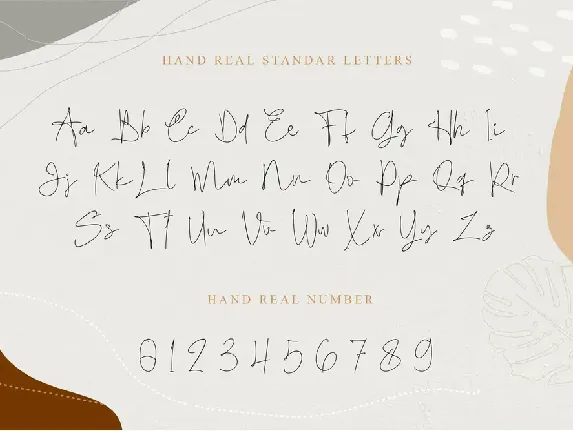 HAND REAL STANDAR LETTERS
Aa Bb Cc Dd Ee Ff Gg Hh Ii
Jj Kk Ll Mm Nn Oo Pp Qq Rr
Ss Tt Uu Vv Ww Xx Yy Zz
HAND REAL NUMBER
0123456789